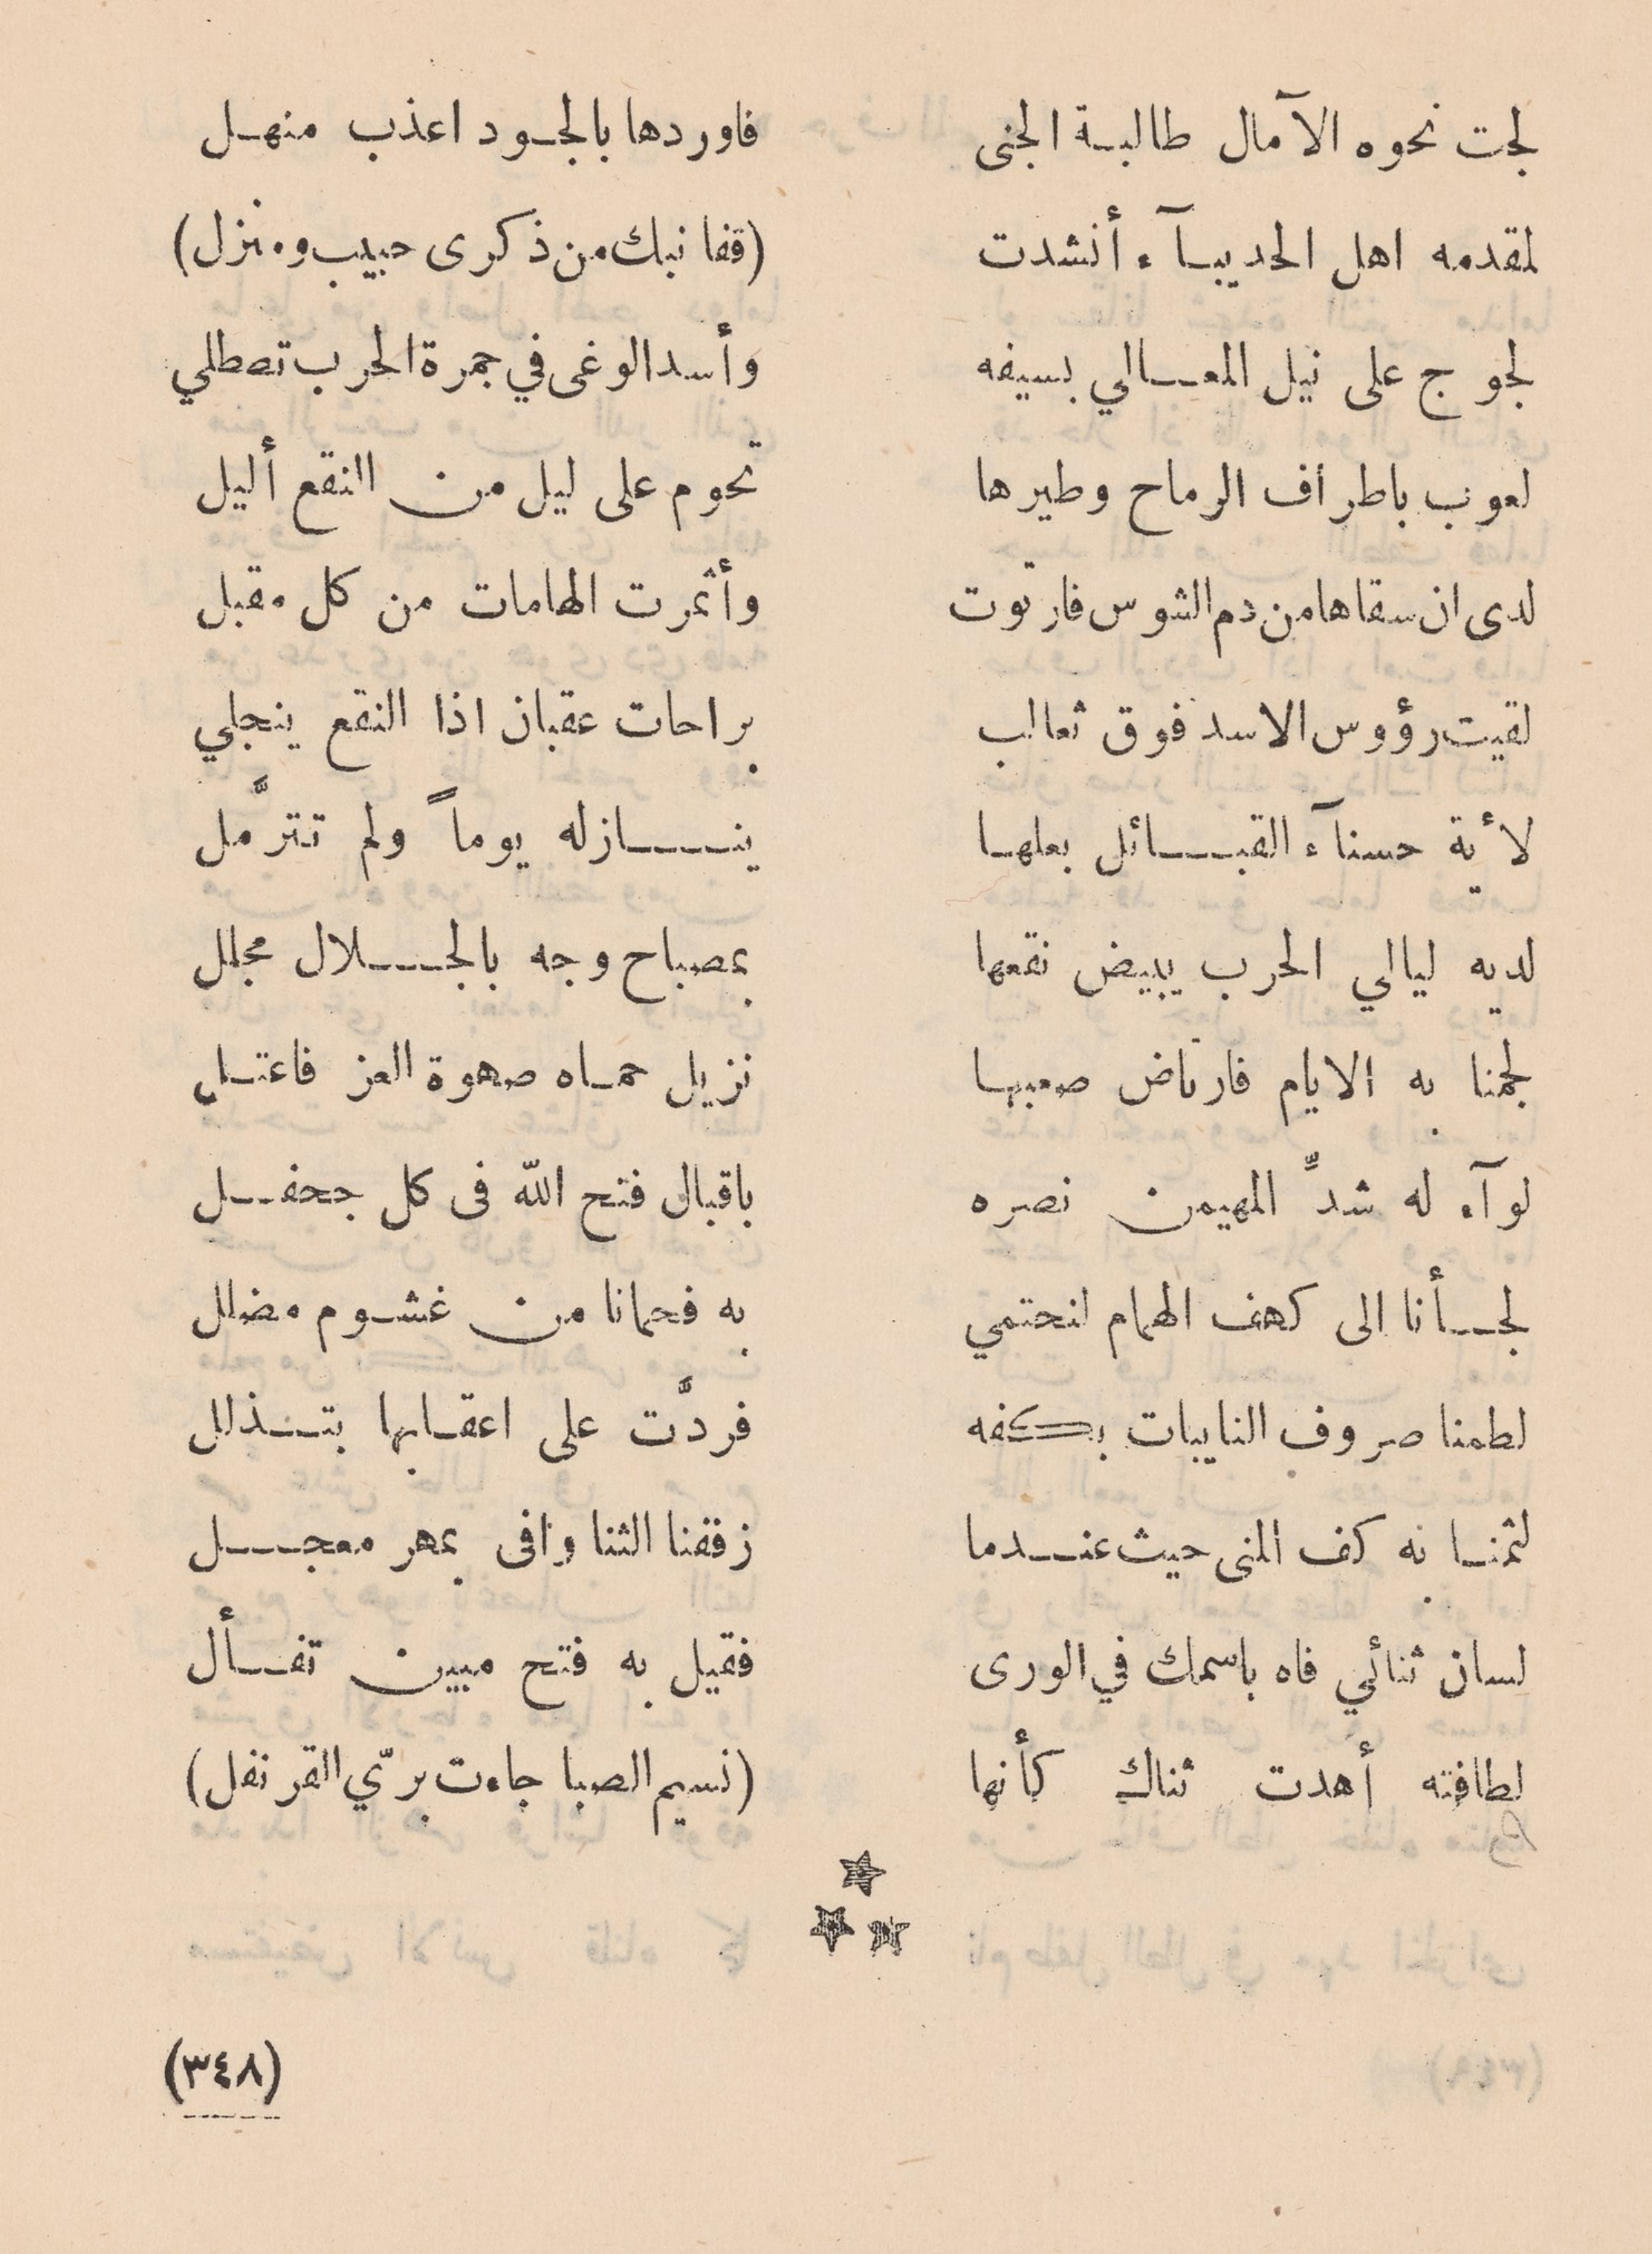 لجت نحوه الآمال طالبة الجنى فاوردها بالجود اعذب منهل
لمقدمه اهل الحديبآء أنشدت (قفا نبك من ذكرى حبيب ومنزل)
لجوج على نيل المعالي بسيفه وأسد الوغى في جمرة الحرب تصطلي
لعوب باطراف الرماح وطيرها تحوم على ليل من النقع أليل
لدى ان سقاها من دم الشوس فارتوت وأثمرت الهامات من كل مقبل
لقيت رؤوس الاسد فوق ثعالب براحات عقبان اذا النقع ينجلي
لأية حسنآء القبائل بعلها ينازله يوماً ولم تترَّمل
لديه ليالي الحرب يبيض نقعها بمصباح وجه بالجلال مجلل
لجمنا به الايام فارتاض صعبها نزيل حماه صهوة العز فاعتل
لوآء له شدِّ المهيمن نصره باقبال فتح اللّه فى كل جحفل
لجأنا الى كهف الهمام لنحتمي به فحمانا من غشوم مضلل
لطمنا صروف النايبات بكفه فردَّت على اعقابها بتذلل
لثمنا به كف المنى حيث عندما زففنا الثنا وافى بمهر معجل
لسان ثنائي فاه باسمك في الورى فقيل به فتح مبين تفأل
لطافته أهدت ثناك كأنها (نسيم الصبا جاءت بريّ القرنفل)
(٣٤٨)